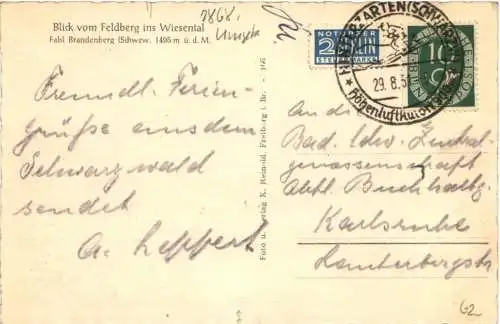 Blick vom Feldberg ins Wiesental
Fahl Brandenberg (Schwzw. 1495 m ü. d. M.
7868.
NOTOPFER
2 BERLIN
STEUERMARKE
HINTERZARTEN (SCHWARZW)
29. 8. 5
Höhenluftkurort
10
Freundl. Ferien-
grüße aus dem
Schwarzwald
sendet
A. Leppert
Foto u. Verlag K. Heimold, Freiburg i. Br.
An die
Bad. ldw. Zentral-
genossenschaft
Abtl. Buchhaltg.
Karlsruhe
Lauterbergstr
62